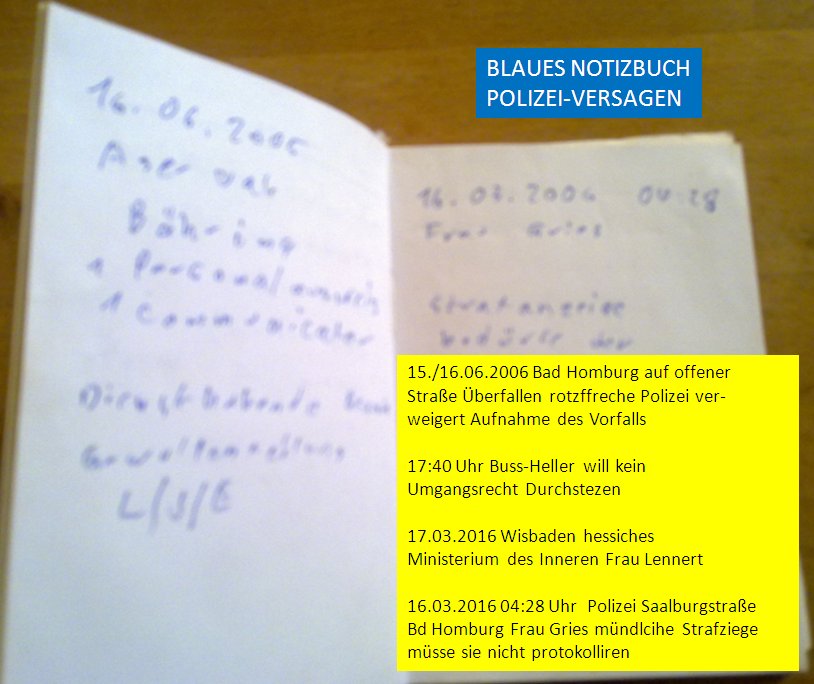 16.06.2006
1 Personalausweis
1 Communicator
Diensthabende
BLAUES NOTIZBUCH
POLIZEI-VERSAGEN
16.03.2006 04:28
Frau Gries
Strafanzeige
bedürfe der
15./16.06.2006 Bad Homburg auf offener
Straße Überfallen rotzffreche Polizei ver-
weigert Aufnahme des Vorfalls
17:40 Uhr Buss-Heller will kein
Umgangsrecht Durchstezen
17.03.2016 Wisbaden hessiches
Ministerium des Inneren Frau Lennert
16.03.2016 04:28 Uhr Polizei Saalburgstraße
Bd Homburg Frau Gries mündlcihe Strafziege
müsse sie nicht protokolliren